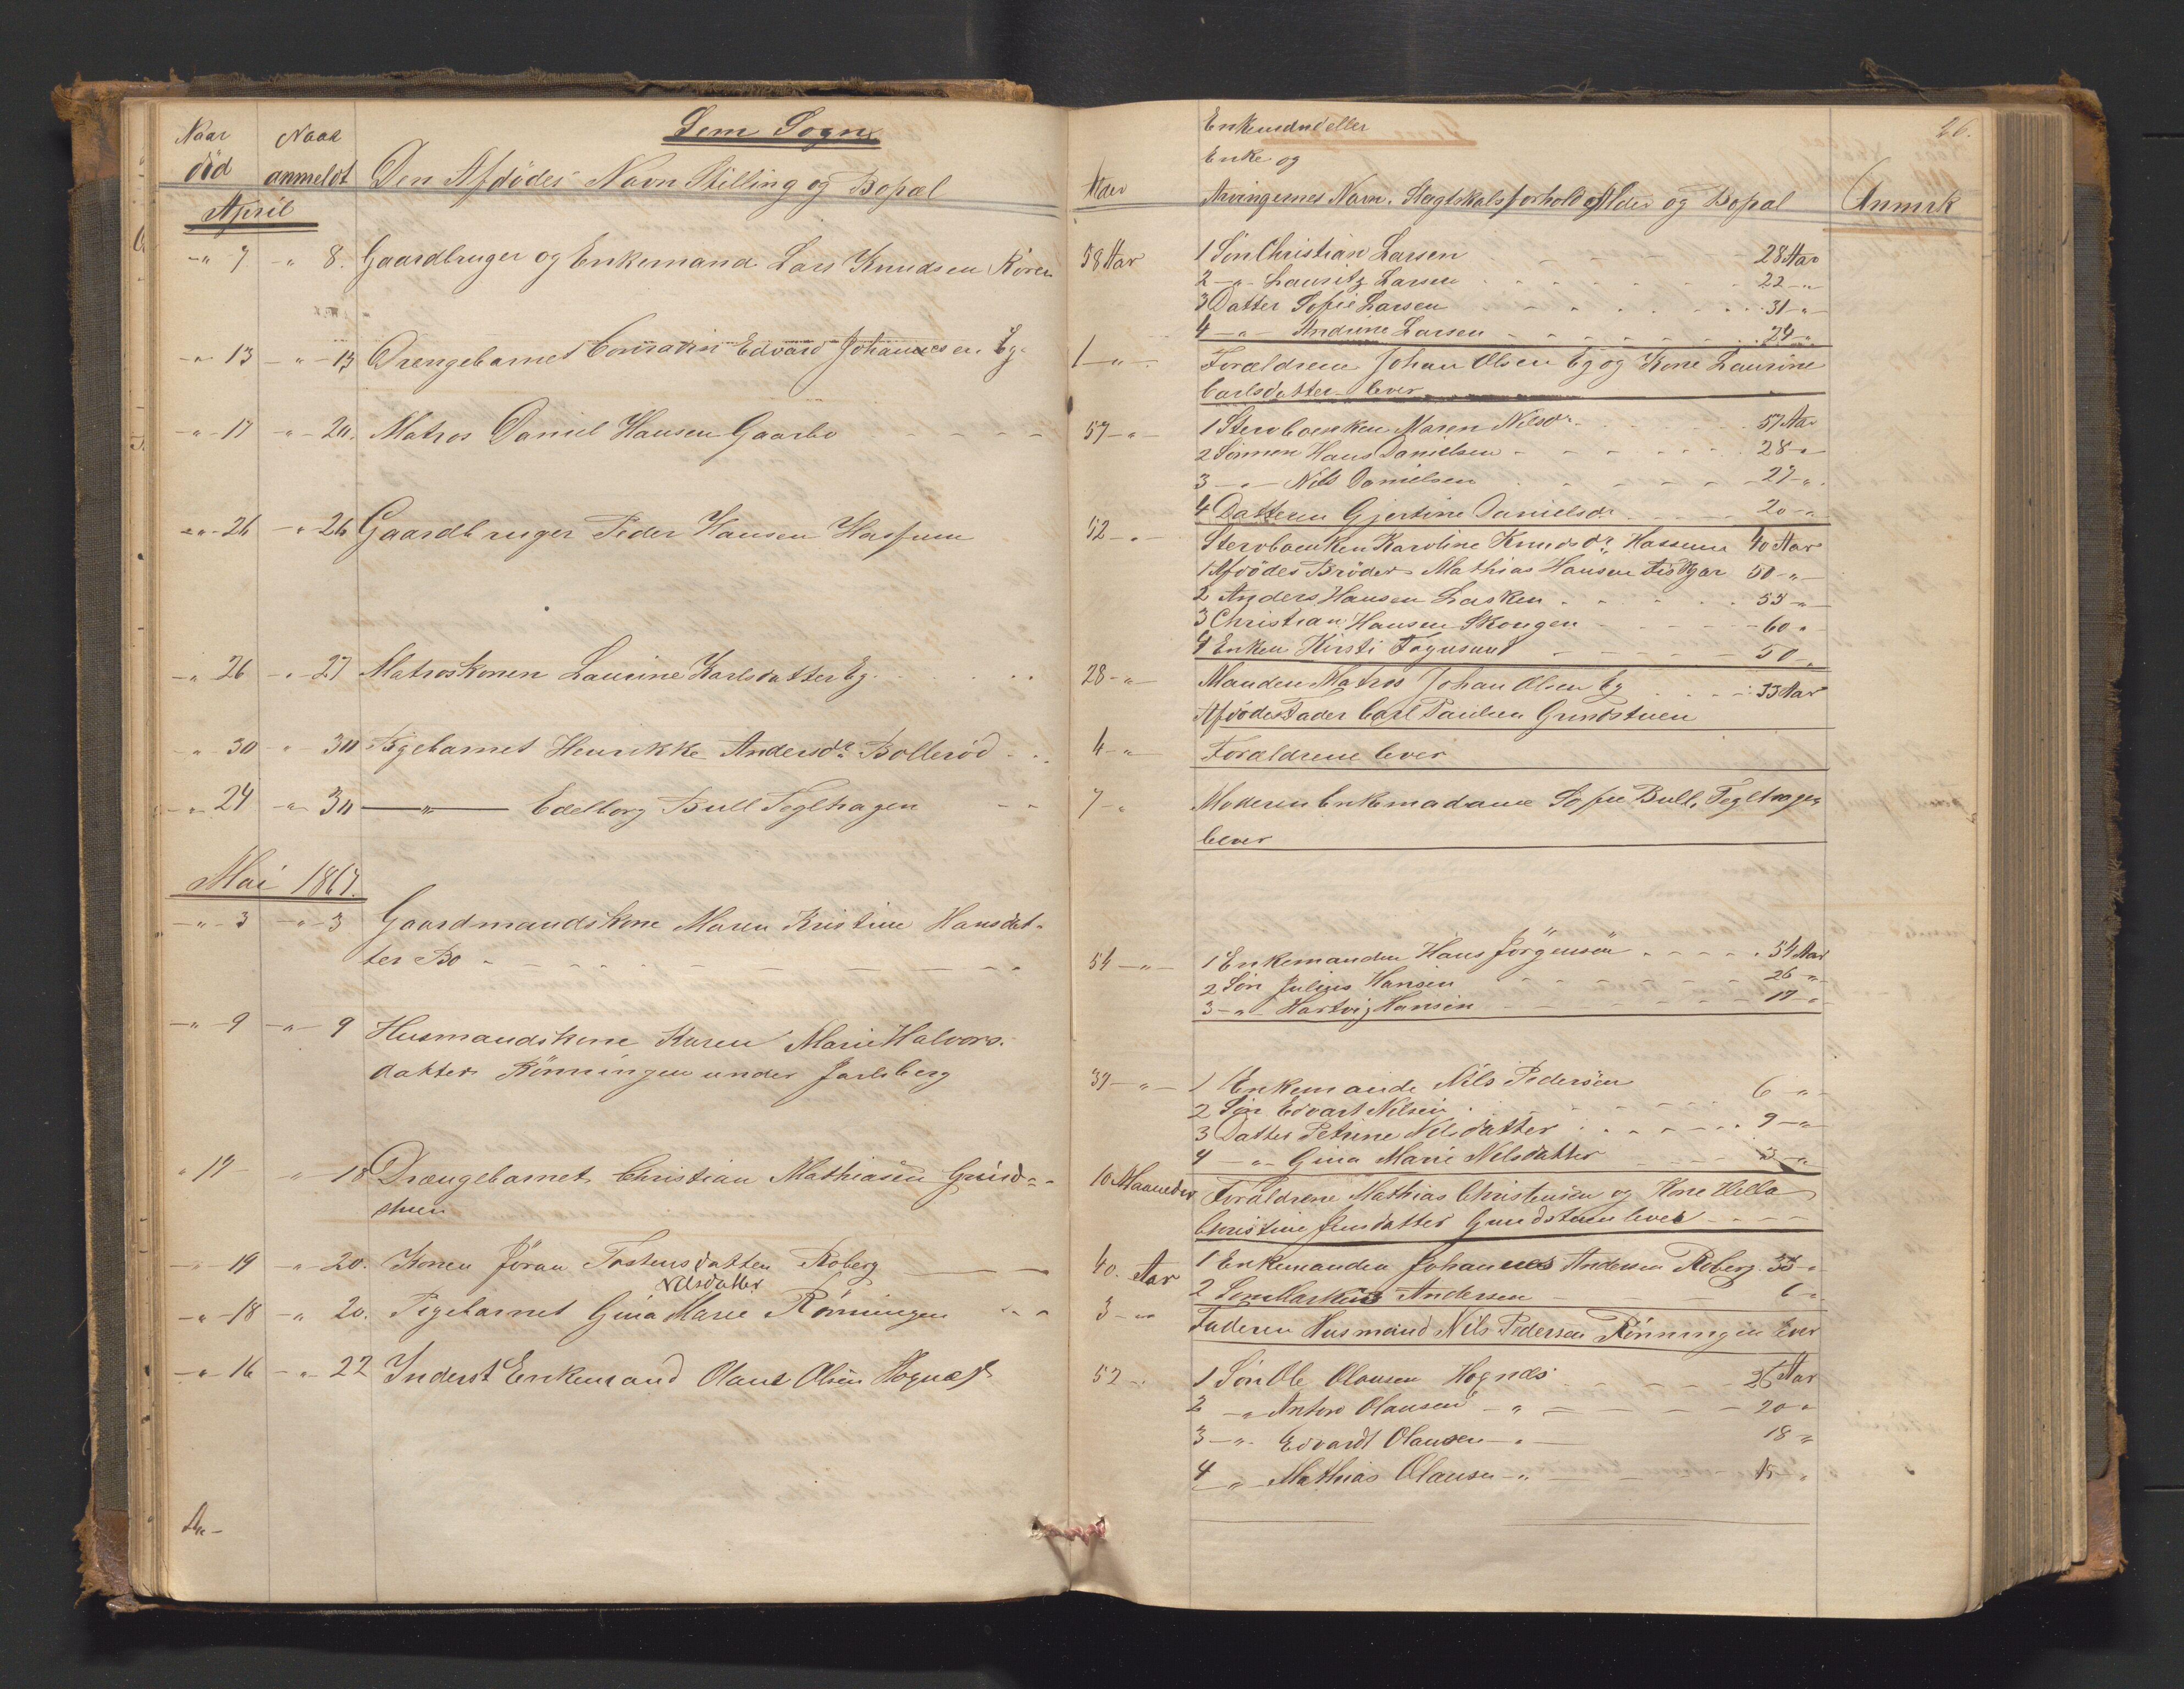 Sem Sogn
Naar død
Naar anmeldt
Den Afdødes Navn Stilling og Bopæl
April
-"- 7 -"- 8. Gaardbruger og Enkemand Lars Knudsen Roren
-"- 13 -"- 13 Drengebarnet Conradin Edvard Johannesen Eg
-"- 17 -"- 20. Matros Daniel Hansen Gaarbo
-"- 26 -"- 26 Gaardbruger Peder Hansen Hassum
-"- 26 -"- 27 Matroskonen Laurine Karlsdatter Eg.
-"- 30 -"- 30 Pigebarnet Henrikke Andersdr. Bollerød
-"- 24 -"- 30 -"- Edelborg Bull Teglhagen
Mai 1867.
-"- 3 -"- 3 Gaardmandskone Maren Kristine Hansdat-
ter Bø
-"- 9 -"- 9 Husmandskone Karen Marie Halvors-
datter Rönningen under Jarlsberg
" 17 " 18 Drængebarnet Christian Mathiasen Grind-
stuen
-"- 19 -"- 20. Konen Jöran Tostensdatter Roberg
Nilsdatter
-"- 18 -"- 20. Pigebarnet Gina Marie Rönningen
-"- 16 -"- 22 Inderst Enkemand Olaus Olsen Hognæs
26.
Enkemand eller
Enke og
Alder
Arvingernes Navn, Slægtskabsforhold Alder og Bopæl
Anmrk
58 Aar 1 Søn Christian Larsen 28 Aar
2 -"- Lauritz Larsen 22 -"-
3 Datter Sofie Larsen 31 -"-
4 -"- Andrine Larsen 24 -"-
1 -"- Forældrene Johan Olsen Eg og Kone Laurine
Carlsdatter lever
57 -"- 1 Stervboenken Maren Nilsdr. 57 Aar
2 Sønnen Hans Danielsen 28 -"-
3 -"- Nils Danielsen 27 -"-
4 Datteren Gjertine Danielsdr. 20 -"-
52 -"- Stervboenken Karoline Knudsdr. Hassum 40 Aar
1 Afdødes Brøder Mathias Hansen 50 -"-
2 Anders Hansen Lasken 55 -"-
3 Christian Hansen Skougen 60 "
4 Enken Kirsti 50 "
28 -"- Manden Matros Johan Olsen Eg 33 Aar
Afdødes Fader Carl Paulsen Grindstuen
4 -"- Forældrene lever
7 -"- Moderen Enkemadame Sofie Bull, Teglhagen
lever
54 -"- 1 Enkemanden Hans Jörgensen 54 Aar
2 Søn Julius Hansen 26 -"-
3 -"- Hartvig Hansen 17 -"-
39 -"- 1 Enkemande Nils Pedersen
2 Søn Edvart Nilsen 6 -"-
3 Datter Petrine Nilsdatter 9 -"-
4 -"- Gina Marie Nilsdatter 3 -"-
10 Maaneder Forældrene Mathias Christensen og Kone Helle
Christine Jensdatter Grindstuen lever
40. Aar 1 Enkemanden Johannes Andersen Roberg 35 -"-
2 Søn Markus Andersen 6 -"-
3 -"- Faderen Husmand Nils Pedersen Rönningen lever
52 -"- 1 Søn Ole Olausen Hognæs 26 Aar
2 -"- Anton Olausen -"- 20 "
3 -"- Edvardt Olausen -"- 18 "
4 -"- Mathias Olausen -"- 15 "